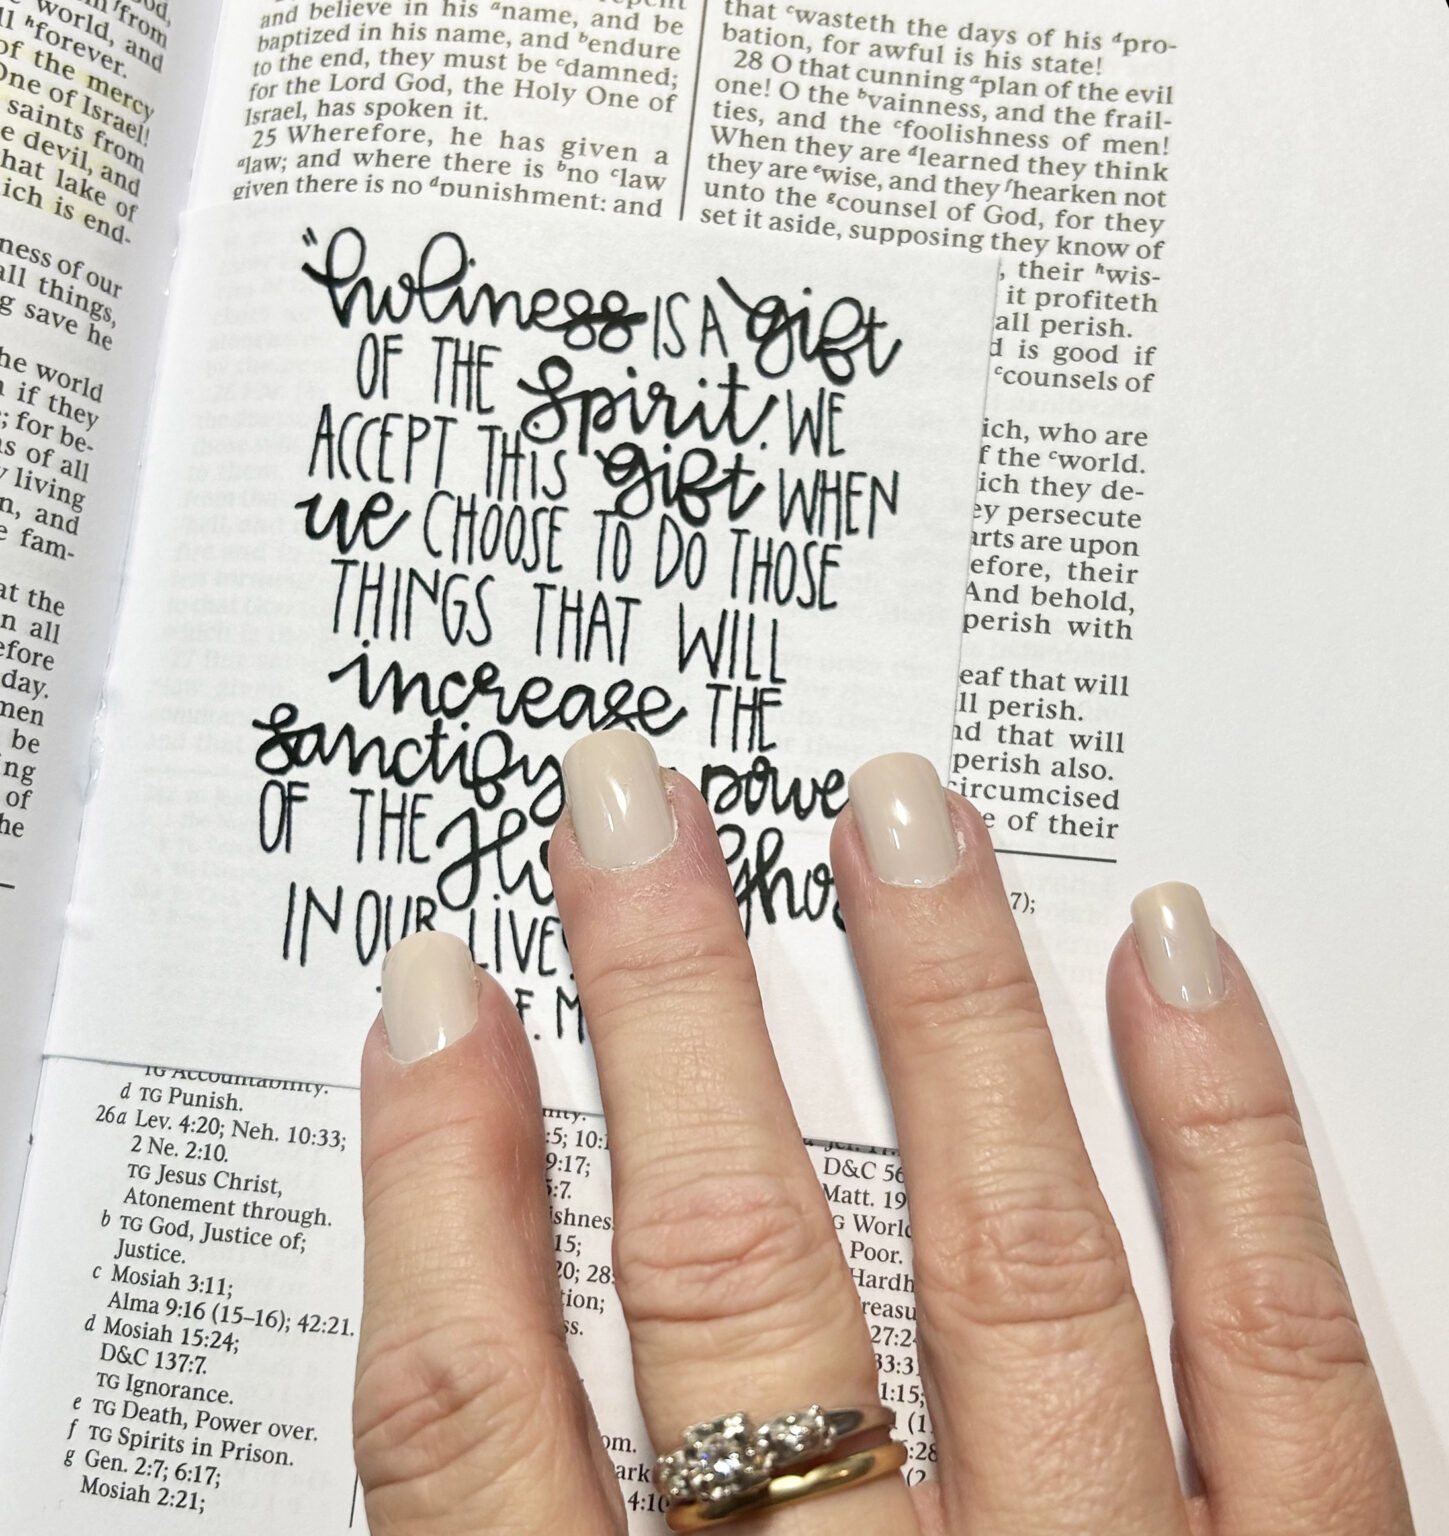 from
world, and
ll ʰforever.
of the mercy
One of Israel!
saints from
e devil, and
hat lake of
ich is end-
ness of our
all things,
g save he
he world
if they
; for be-
s of all
living
n, and
e fam-
at the
n all
efore
day.
men
be
ng
of
he
and believe in his ᵃname, and be
baptized in his name, and ᵇendure
to the end, they must be ᶜdamned;
for the Lord God, the Holy One of
Israel, has spoken it.
25 Wherefore, he has given a
ᵃlaw; and where there is ᵇno ᶜlaw
given there is no ᵈpunishment: and
that ᶜwasteth the days of his ᵈpro-
bation, for awful is his state!
28 O that cunning ᵃplan of the evil
one! O the ᵇvainness, and the frail-
ties, and the ᶜfoolishness of men!
When they are ᵈlearned they think
they are ᵉwise, and they ᶠhearken not
unto the ᵍcounsel of God, for they
set it aside, supposing they know of
, their ʰwis-
it profiteth
all perish.
d is good if
ᶜcounsels of
ich, who are
f the ᶜworld.
ich they de-
ey persecute
arts are upon
efore, their
And behold,
perish with
eaf that will
ll perish.
nd that will
perish also.
circumcised
e of their
"holiness IS A gift
OF THE Spirit. WE
ACCEPT THIS gift WHEN
we CHOOSE TO DO THOSE
THINGS THAT WILL
increase THE
Sanctify powe
OF THE Ho Ghos
IN OUR LIVES
F. M
TG Accountability.
d TG Punish.
26a Lev. 4:20; Neh. 10:33;
2 Ne. 2:10.
TG Jesus Christ,
Atonement through.
b TG God, Justice of;
Justice.
c Mosiah 3:11;
Alma 9:16 (15–16); 42:21.
d Mosiah 15:24;
D&C 137:7.
TG Ignorance.
e TG Death, Power over.
f TG Spirits in Prison.
g Gen. 2:7; 6:17;
Mosiah 2:21;
:5; 10:1
9:17;
5:7.
ishnes
15;
20; 28:
tion;
ss.
om.
ark
4:10
7);
D&C 56
Matt. 19
G World
Poor.
Hardh
reasu
27:24
33:3
1:15;
(1
6:28
(2